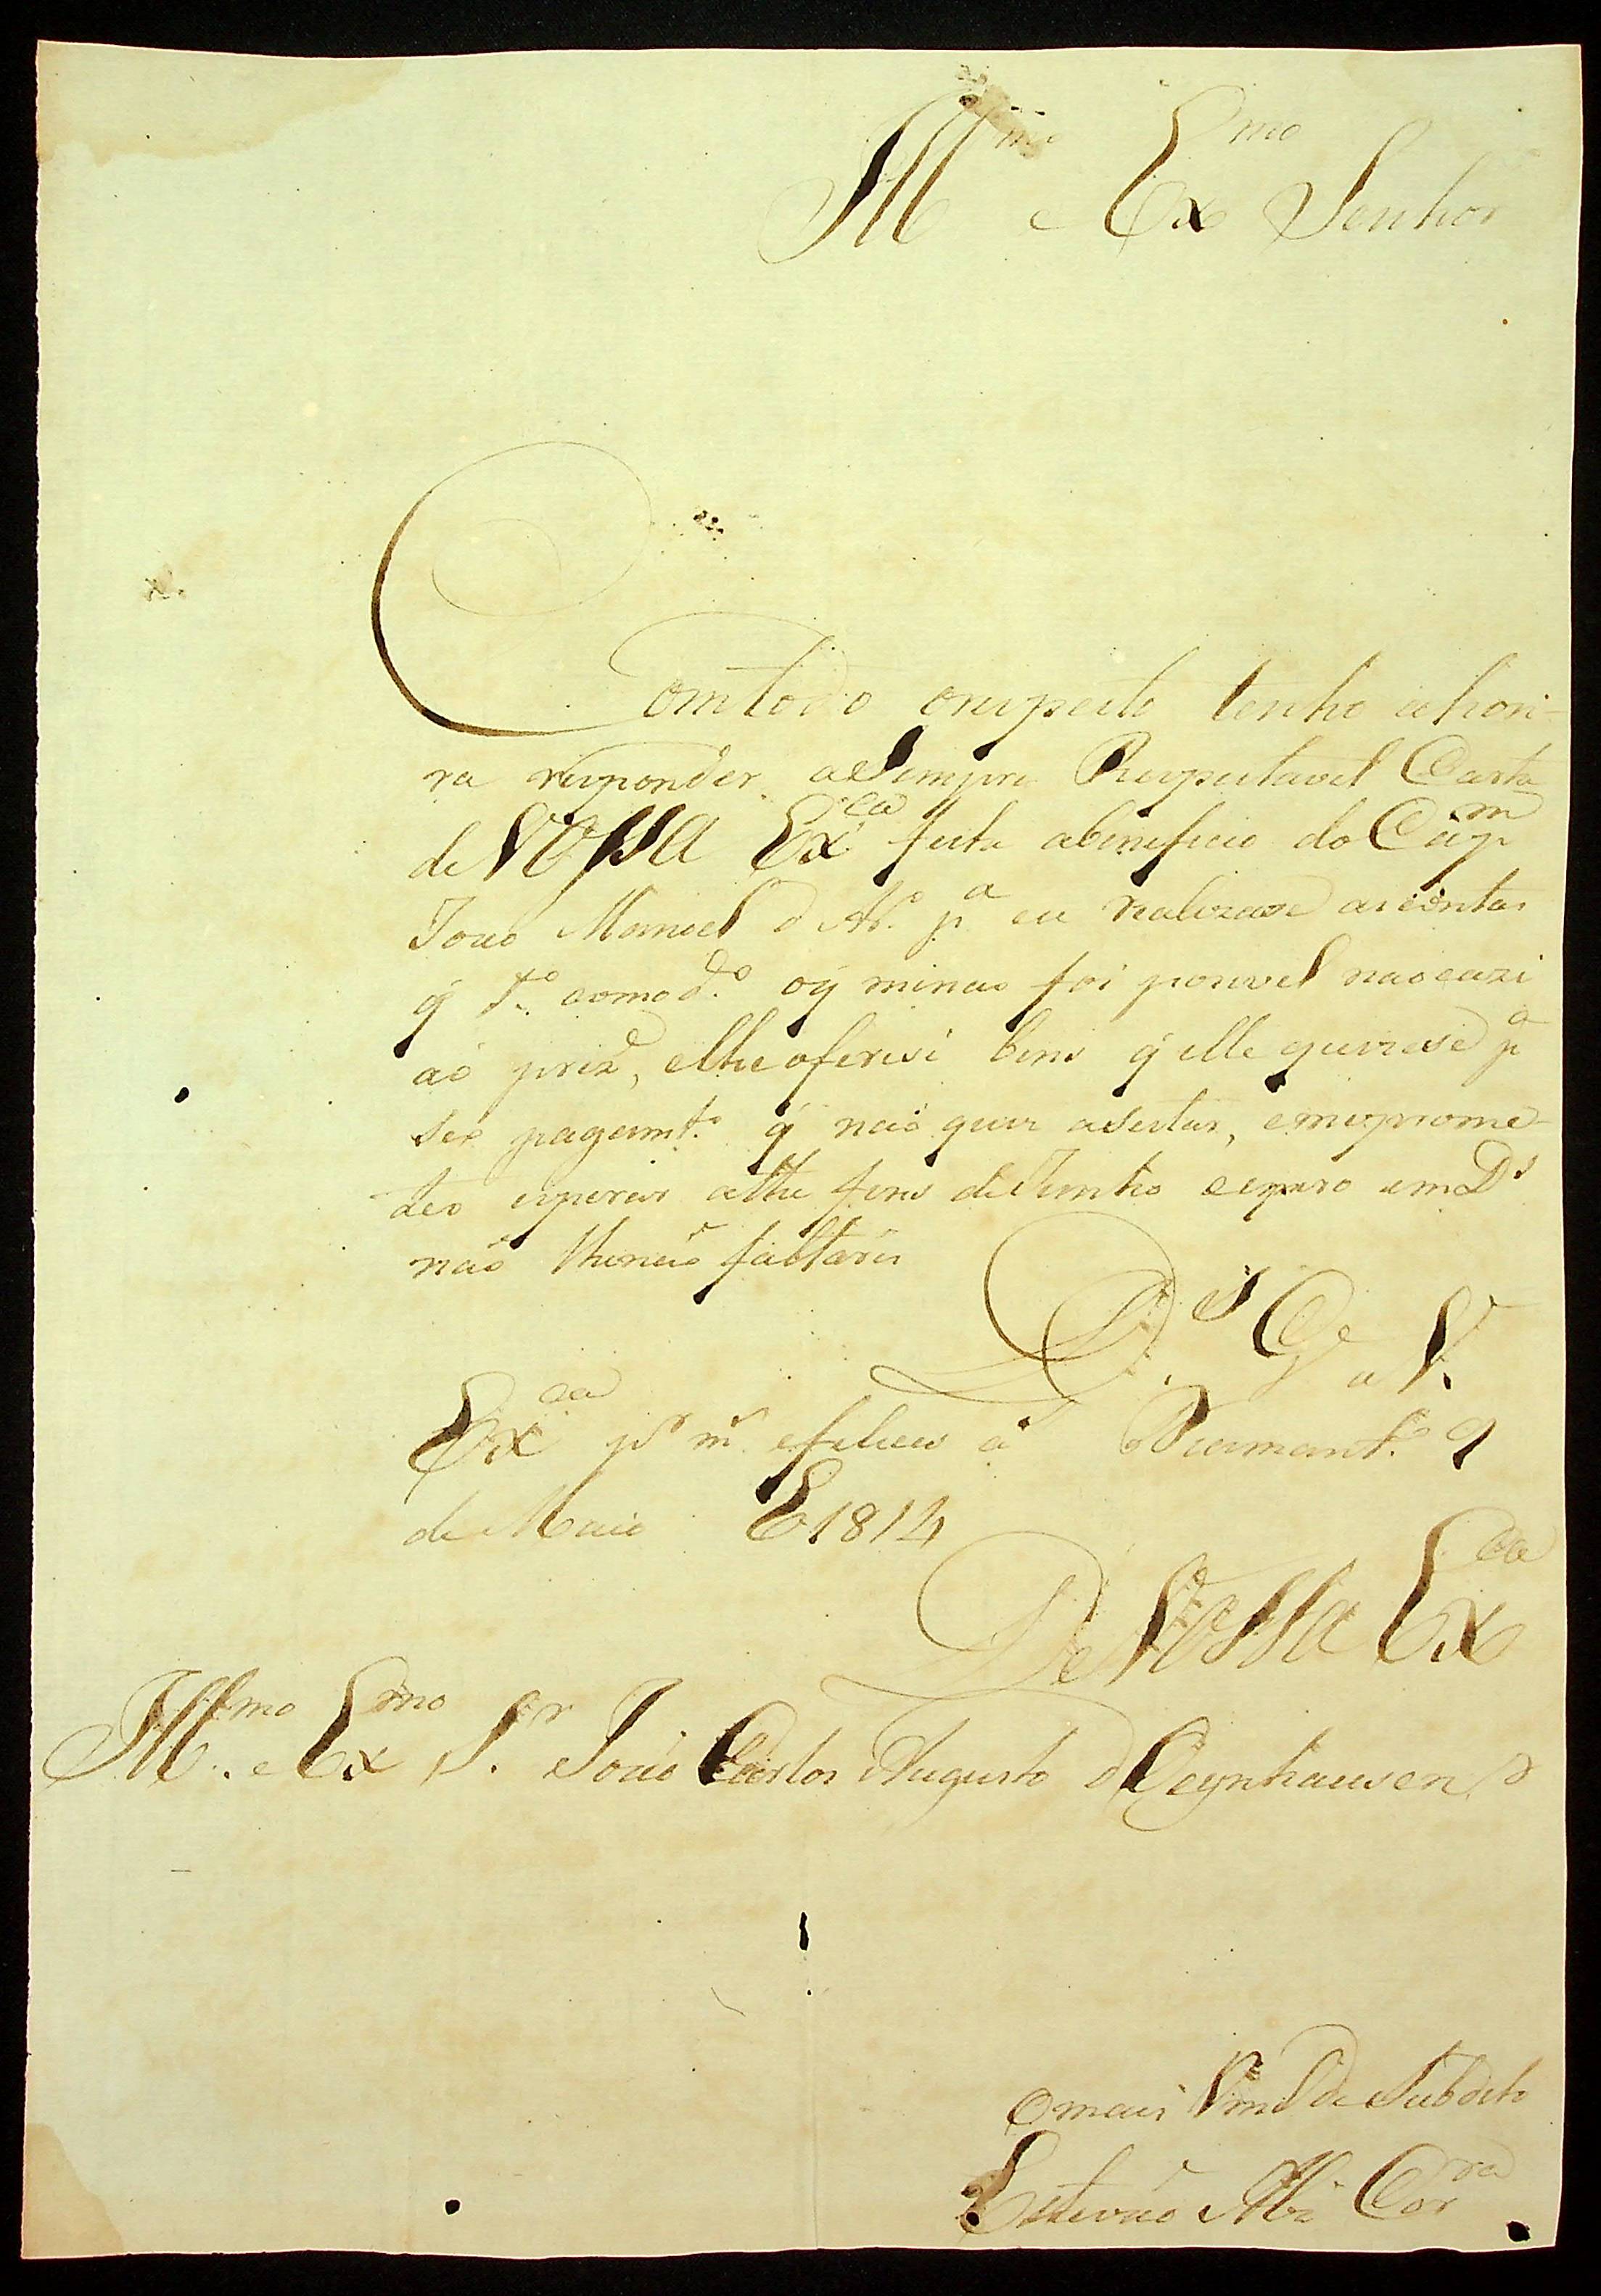 Illmo e Exmo Senhor
Com todo orespeito tenho ahon-
ra responder aSempre Respeitavel Carta
de Vossa Exca feita abeneficio do Capm
João Manoel d Ar.o pa eu realizase as contas
q̃ t.o com o d.o oq̃ mi nao foi posivel nao cazi
aó prez, elhe oferesi bens q̃ elle quizese pa
seo pagamt.o q̃ não quiz aseitar, emeprome-
teo esperar athe fins de Junho eespero em Ds
não lhenão faltarei
Ds Ge a V.
Exca pr ms efelices as Diamant.o 9
de Maio E 1814
De Vossa Exca
Illmo e Exmo Sr João Carlos Augusto d Oeynhausen
Omais Umilde Subdito
Estevão Corra